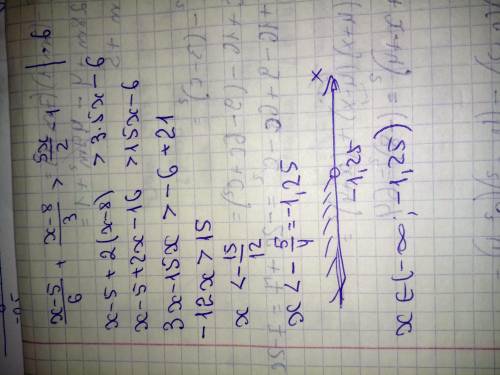 x-5/6 + x-8/3 > 5x/2 - 1 | · 6
x-5+2(x-8) > 3·5x-6
x-5+2x-16 > 15x-6
3x-15x > -6+21
-12x > 15
x < -15/12
x < -5/4 = -1,25
-1,25 x
x ∈ (-∞; -1,25)